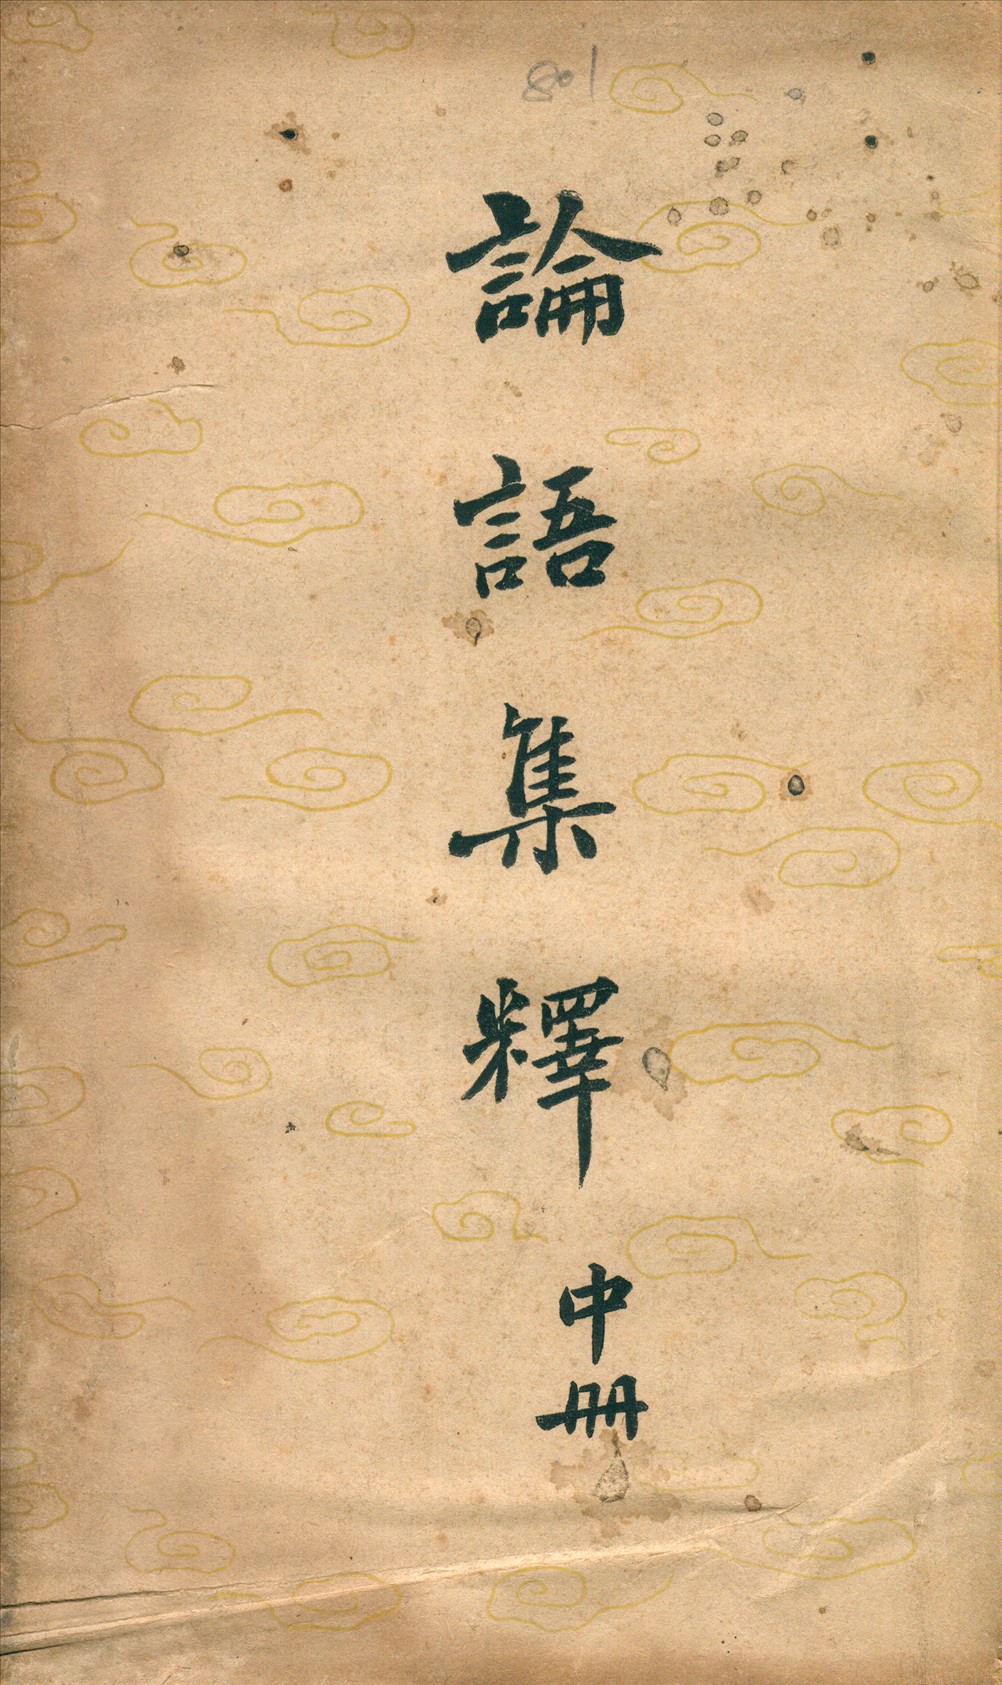 801
論語集釋
中册